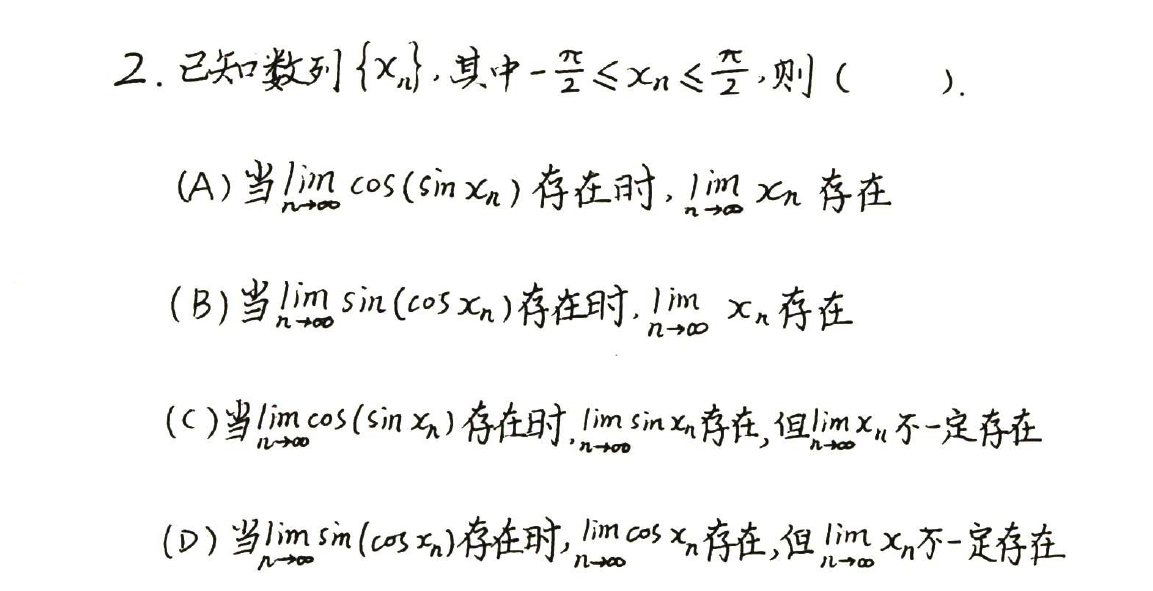 2. 已知数列{xₙ}, 其中 -π/2 ≤ xₙ ≤ π/2, 则 (    ).
(A) 当 lim n→∞ cos(sin xₙ) 存在时, lim n→∞ xₙ 存在
(B) 当 lim n→∞ sin(cos xₙ) 存在时, lim n→∞ xₙ 存在
(C) 当 lim n→∞ cos(sin xₙ) 存在时, lim n→∞ sin xₙ 存在, 但 lim n→∞ xₙ 不一定存在
(D) 当 lim n→∞ sin(cos xₙ) 存在时, lim n→∞ cos xₙ 存在, 但 lim n→∞ xₙ 不一定存在